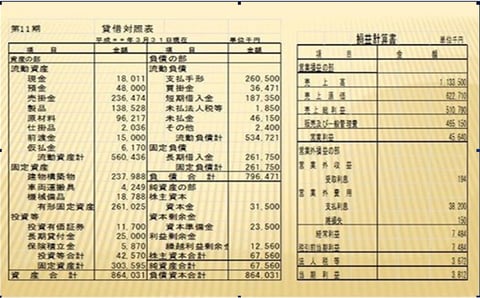 第11期 貸借対照表
平成**年3月31日現在 単位千円
項目 金額 項目 金額
資産の部 負債の部
流動資産 流動負債
現金 18,011 支払手形 260,500
預金 48,000 買掛金 36,471
売掛金 236,474 短期借入金 187,350
製品 138,528 未払法人税等 1,850
原材料 96,217 未払金 46,150
仕掛品 2,036 その他 2,400
前渡金 15,000 流動負債計 534,721
仮払金 6,170 固定負債
流動資産計 560,436 長期借入金 261,750
固定資産 固定負債計 261,750
建物構築物 237,988 負債合計 796,471
車両運搬具 4,249 純資産の部
機械備品 18,788 株主資本
有形固定資産 261,025 資本金 31,500
投資等 資本剰余金
投資有価証券 11,700 資本準備金 23,500
長期貸付金 25,000 利益剰余金
保険積立金 5,870 繰越利益剰余金 12,560
投資等合計 42,570 株主資本合計 67,560
固定資産計 303,595 純資産合計 67,560
資産合計 864,031 負債資本合計 864,031
損益計算書 単位千円
項目 金額
営業損益の部
売上高 1,133,500
売上原価 622,710
売上総利益 510,790
販売及び一般管理費 465,150
営業利益 45,640
営業外損益の部
営業外収益
受取利息 194
営業外費用
支払利息 38,200
雑損失 150
経常利益 7,484
税引前当期利益 7,484
法人税等 3,672
当期利益 3,812